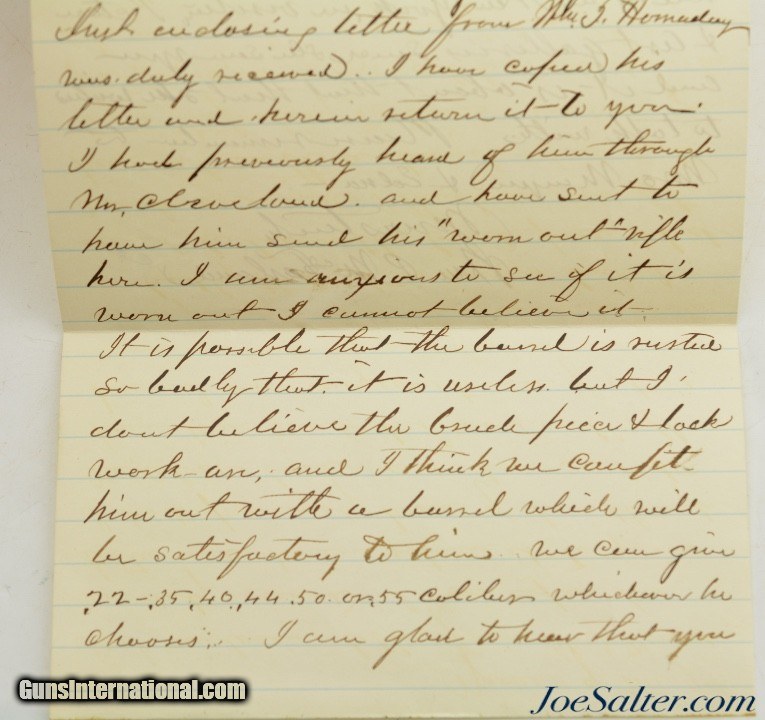 Inst enclosing letter from Wm T. Hornaday
was duly received. I have copied his
letter and herein return it to you.
I had previously heard of him through
Mr. Cleveland. and have sent to
have him send his "worn out" rifle
here. I am anxious to see if it is
worn out I cannot believe it.
It is possible that the barrel is rusted
so badly that it is useless but I
dont believe the breech piece & lock
work are, and I think we can fit
him out with a barrel which will
be satisfactory to him. we can give
.22-.35,.40,.44 .50 or .55 caliber whichever he
chooses. I am glad to hear that you
GunsInternational.com
JoeSalter.com